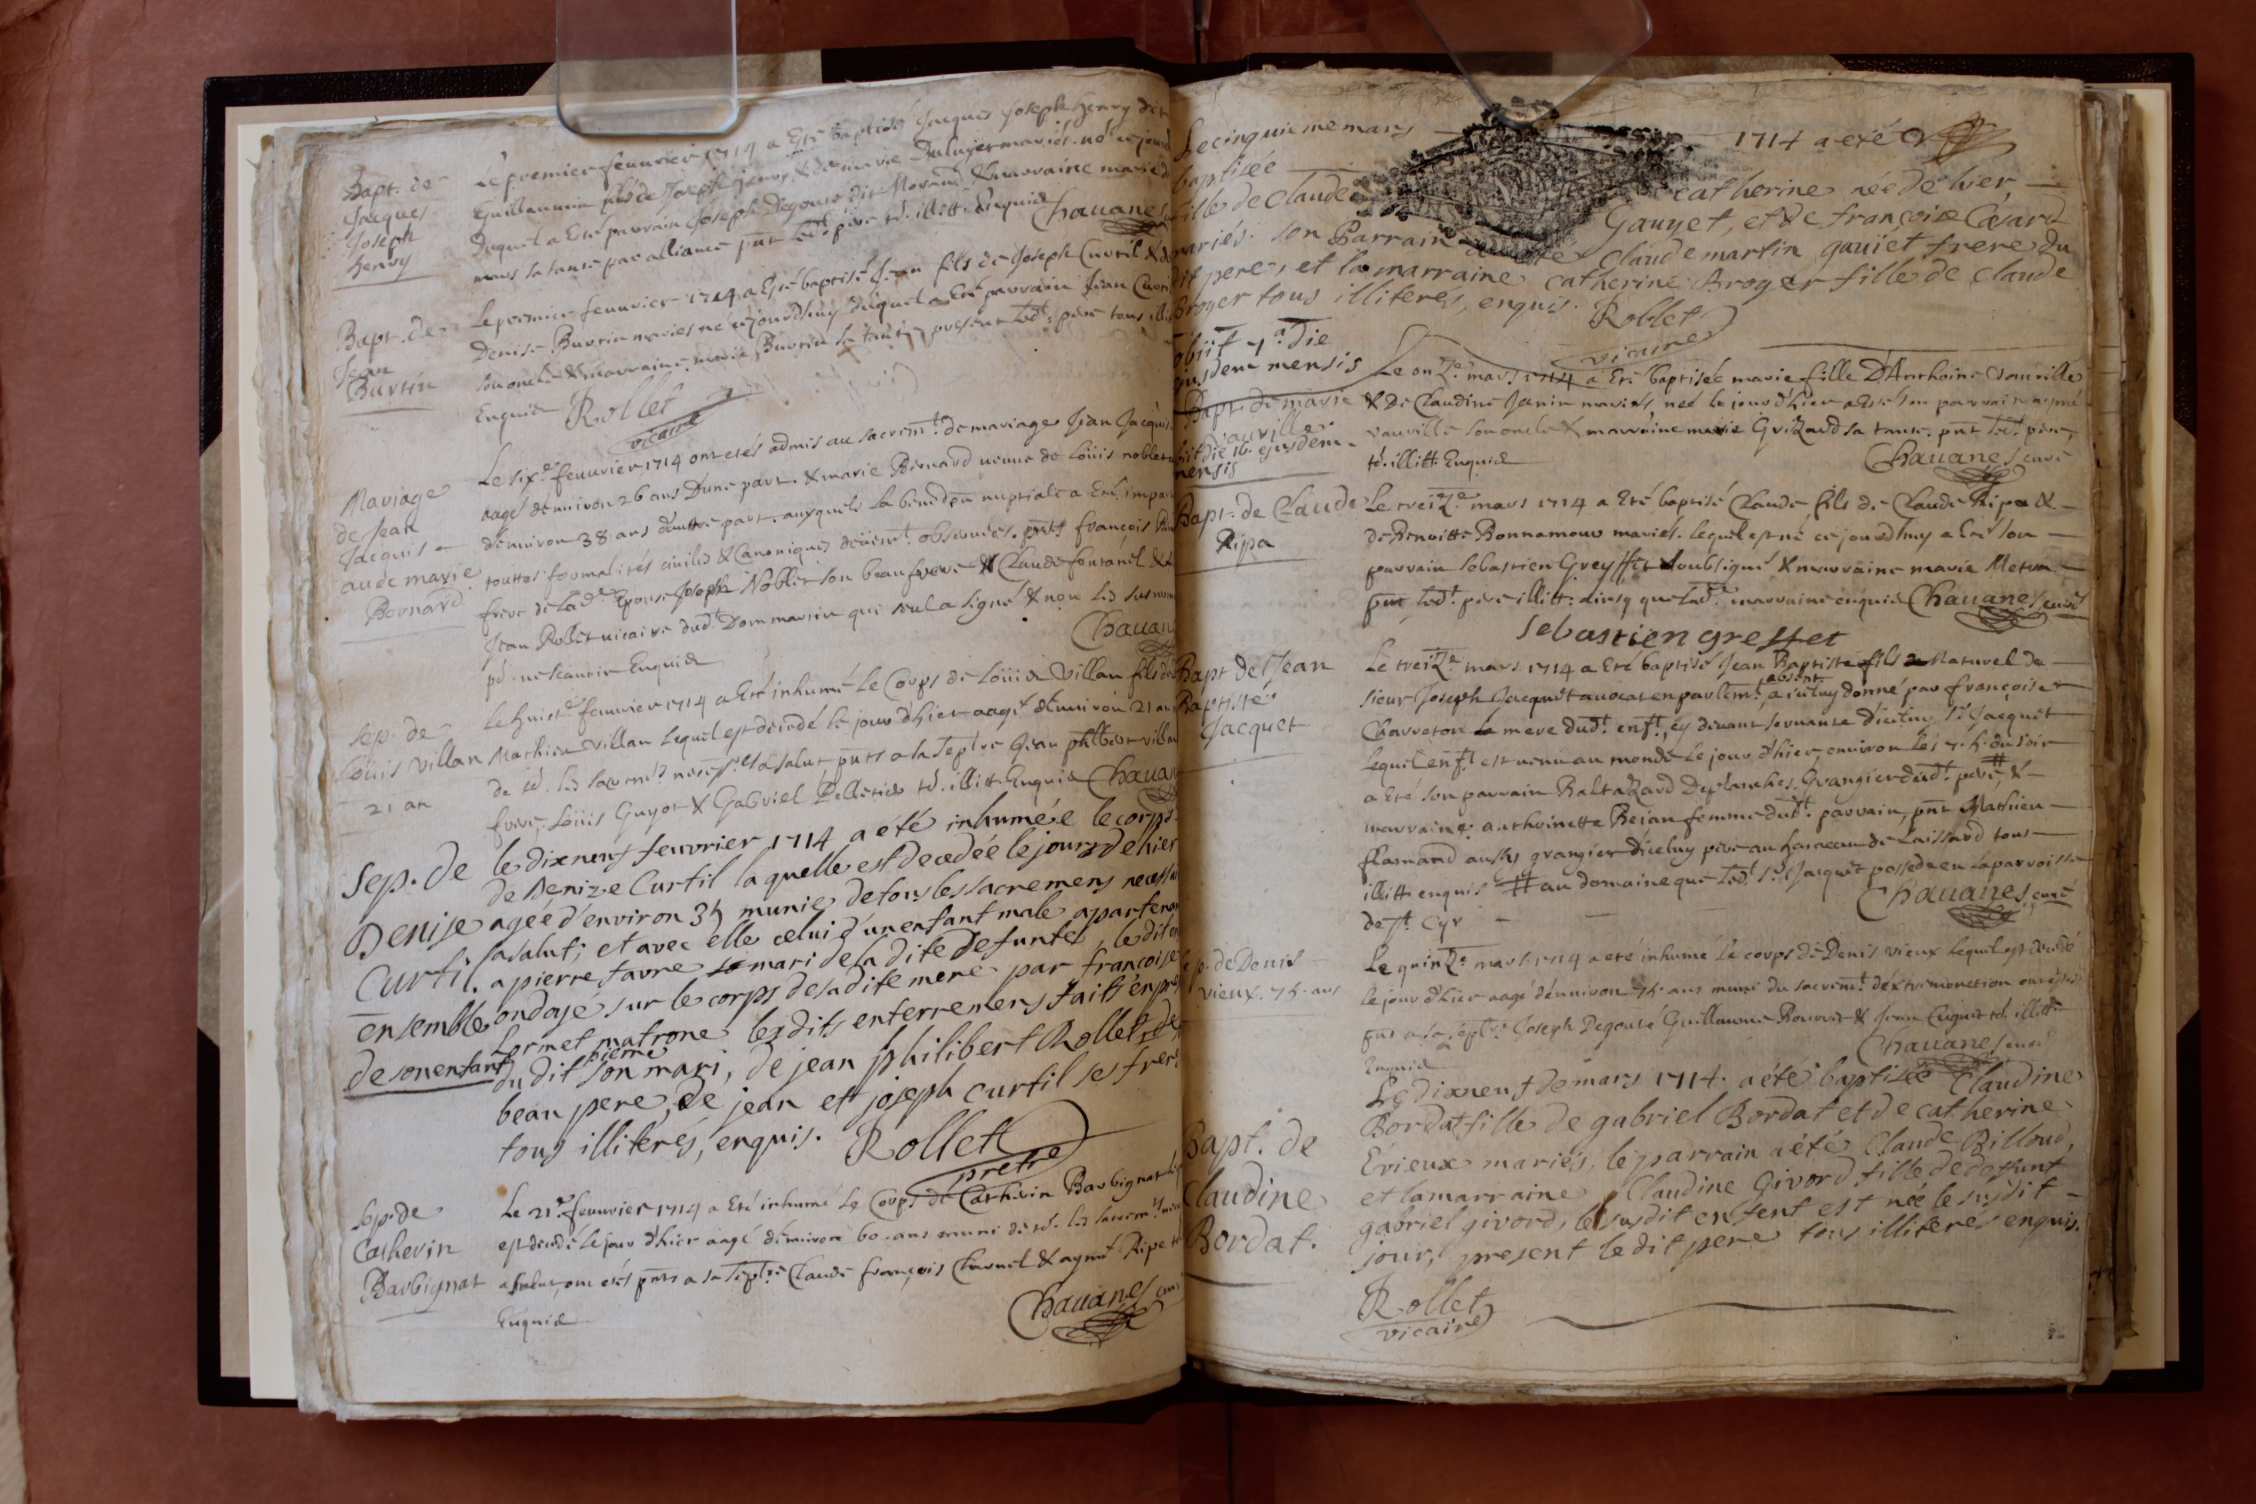 Bapt. de
Jacques
Joseph
henry
Le premier feuurier 1714 a Eté baptisé Jacques Joseph henry dit
Guillaumin fils de Joseph henry & de marie mariés. né cejourd
duquel a Eté parrain Joseph Degouse dit Morand & marraine marie
mans sa tante par alliance pnt led.t père td. illitt. Enquis Chauanes
Bapt. de
Jean
Burtin
Le premier feuurier 1714 a Eté baptisé Jean fils de Joseph Curtil & de
Denise Burtin mariés né cejourdhuy duquel a Eté parrain Jean Curti
son oncle & marraine marie Burtin sa tante présent led.t père tous illi
Enquis Rollet
vicaire
Mariage
de Jean
Jacquis
auec marie
Bernard
Le six.e feuurier 1714 ont etés admis au sacrem.t de mariage Jean Jacquis
aagé denuiron 26 ans Dune part. & marie Bernard ueuue de Loüis noblet
denuiron 38 ans dauttre part. auxquels la benedon nuptiale a Eté impar
touttes formalités ciuiles & Canoniques deüem.t obseruées. pnts françois
frere de lad.e Epouse Joseph Noblet son beau frere & Claude fontanel &
Jean Rollet uicaire dud.t Dommartin qui seul a signé & non les susnom
pd. ne scauoir Enquis Chauan
Sep. de
Loüis Villan
21 an
Le huict.e feuurier 1714 a Eté inhumé Le Corps de Loüis Villan fils de
Mathieu Villan Lequel est decedé le jour d'hier aagé denuiron 21 ans
de td. les sacrem.ts necess.res a salut pnts a la seplre Jean philbert villan
frere, Loüis Guyot & Gabriel Pelletier td. illitt. Enquis Chaua
Sep. de
Denise
Curtil.
ensemble
de son enfant
le dixneuf feuvrier 1714 a été inhumée le corps
de Denize Curtil laquelle est decedée le jour de hier
agée d'environ 35 munie de tous les sacremens necess
sa salut; et avec elle celui d'un enfant male apartena
a pierre favre mari de la dite defunte, le dit en
ondoyé sur le corps de sa dite mere par françoise
Lormet matrone lesdits enterremens faits en pre
du dit pierre son mari, de jean philibert Rollet
beau pere, de jean et joseph curtil ses frere
tous illiterés, enquis. Rollet
pretre
Sep. de
Catherin
Barbignat
Le 21.e feuurier 1714 a Eté inhumé Le Corps de Catherin Barbignat leq
est decedé le jour d'hier aagé denuiron 60. ans muni de td. les sacrem.ts
a salut, ont etés pnts a sa seplre Claude françois Charuel & aymé Ripe
Enquis Chauanes curé
Le cinquieme mars 1714 a eté
baptisée catherine née de hier
fille de Claude Gauyet, et de françoise Cesard
mariés. son Parrain a été Claude martin gauiet frere du
dit pere, et la marraine catherine Broyer fille de Claude
Broyer tous illiteres, enquis. Rollet
vicaire
obiit 7.a die
ejusdem mensis
Bapt. de marie
vauville
obiit die 16. ejusdem
mensis
Le onz.e mars 1714 a Eté baptisée marie fille D'Anthoine Vauville
& De Claudine Janin mariés née le jour d'hier a Eté son parrain aymé
vauville son oncle & marraine marie Grizard sa tante. pnt led.t père,
td. illitt. Enquis Chauanes curé
Bapt. de Claude
Ripa
Le treiz.e mars 1714 a Eté baptisé Claude fils de Claude Ripa &
de Benoitte Bonnamour mariés. lequel est né ce jourdhuy a Eté son
parrain Sebastien Greyffet soubsigné & marraine marie Metra
pnt led.t père illitt. ainsy que lad.e marraine enquis Chauanes curé
sebastien greffet
Bapt de Jean
Baptiste
Jacquet
Le treiz.e mars 1714 a Eté baptisé Jean Baptiste fils Naturel de
sieur Joseph Jacquet auocat en parlem.t absent a iceluy donné par françoise
Charreton la mere dud.t enf.t cy deuant seruante diceluy s.r Jacquet
lequel enf.t est uenu au monde le jour d'hier, enuiron les 7. h. du soir
a Eté son parrain Baltazard Deplanches. Grangier dud.t père #, &
marraine anthoinette Rejan femme dud.t parrain, pnt Mathieu
flamand aussy grangier diceluy père au hameau de Laissard tous
illitt enquis # au domaine que led.t s.r Jacquet possede en la parroisse
de s.t Cyr Chauanes curé
Sep. de Denis
vieux. 75. ans
Le quinz.e mars 1714 a eté inhumé le corps de Denis vieux lequel est decedé
le jour d'hier aagé denuiron 75. ans muni du sacrem.t dextremonction ont etés
pnt a sa seplre Joseph Degouse Guillaume Bouuet & Jean Cuguet td. illitt.
Enquis Chauanes curé
Bapt. de
Claudine
Bordat.
Le dixneuf de mars 1714. a été baptisée Claudine
Bordat fille de gabriel Bordat et de catherine
Evieux mariés, le parrain a été Claude Billoud,
et la marraine Claudine Givord fille de defunt
gabriel givord, le susdit enfent est née le susdit
jour, present le dit pere tous illiterés enquis.
Rollet
vicaire